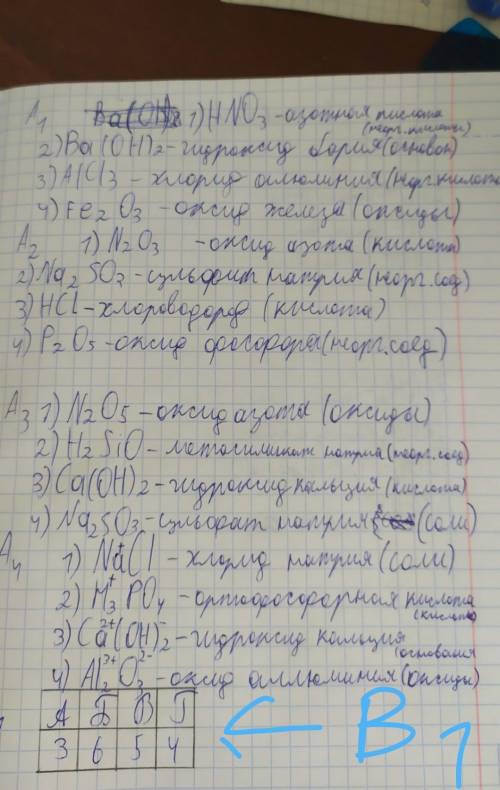 A1 Ba(OH)2 1) HNO3 - азотная кислота
(неорг. кислоты)
2) Ba(OH)2 - гидроксид бария (основан)
3) AlCl3 - хлорид аллюминия (неорг. кислота
4) Fe2O3 - оксид железа (оксиды)
A2 1) N2O3 - оксид азота (кислота)
2) Na2SO3 - сульфит натрия (неорг. соед)
3) HCl - хлороводород (кислота)
4) P2O5 - оксид фосфора (неорг. соед)
A3 1) N2O5 - оксид азота (оксиды)
2) H2SiO - метасиликат натрия (неорг. соед)
3) Ca(OH)2 - гидроксид кальция (кислота)
4) Na2SO3 - сульфат натрия (соли)
A4 1) Na+Cl - хлорид натрия (соли)
2) H3+PO4 - ортофосфорная кислота
(кислота)
3) Ca2+(OH)2- - гидроксид кальция
(основания
4) Al2 3+O3 2- - оксид аллюминия (оксиды)
А Б В Г
3 6 5 4
B1